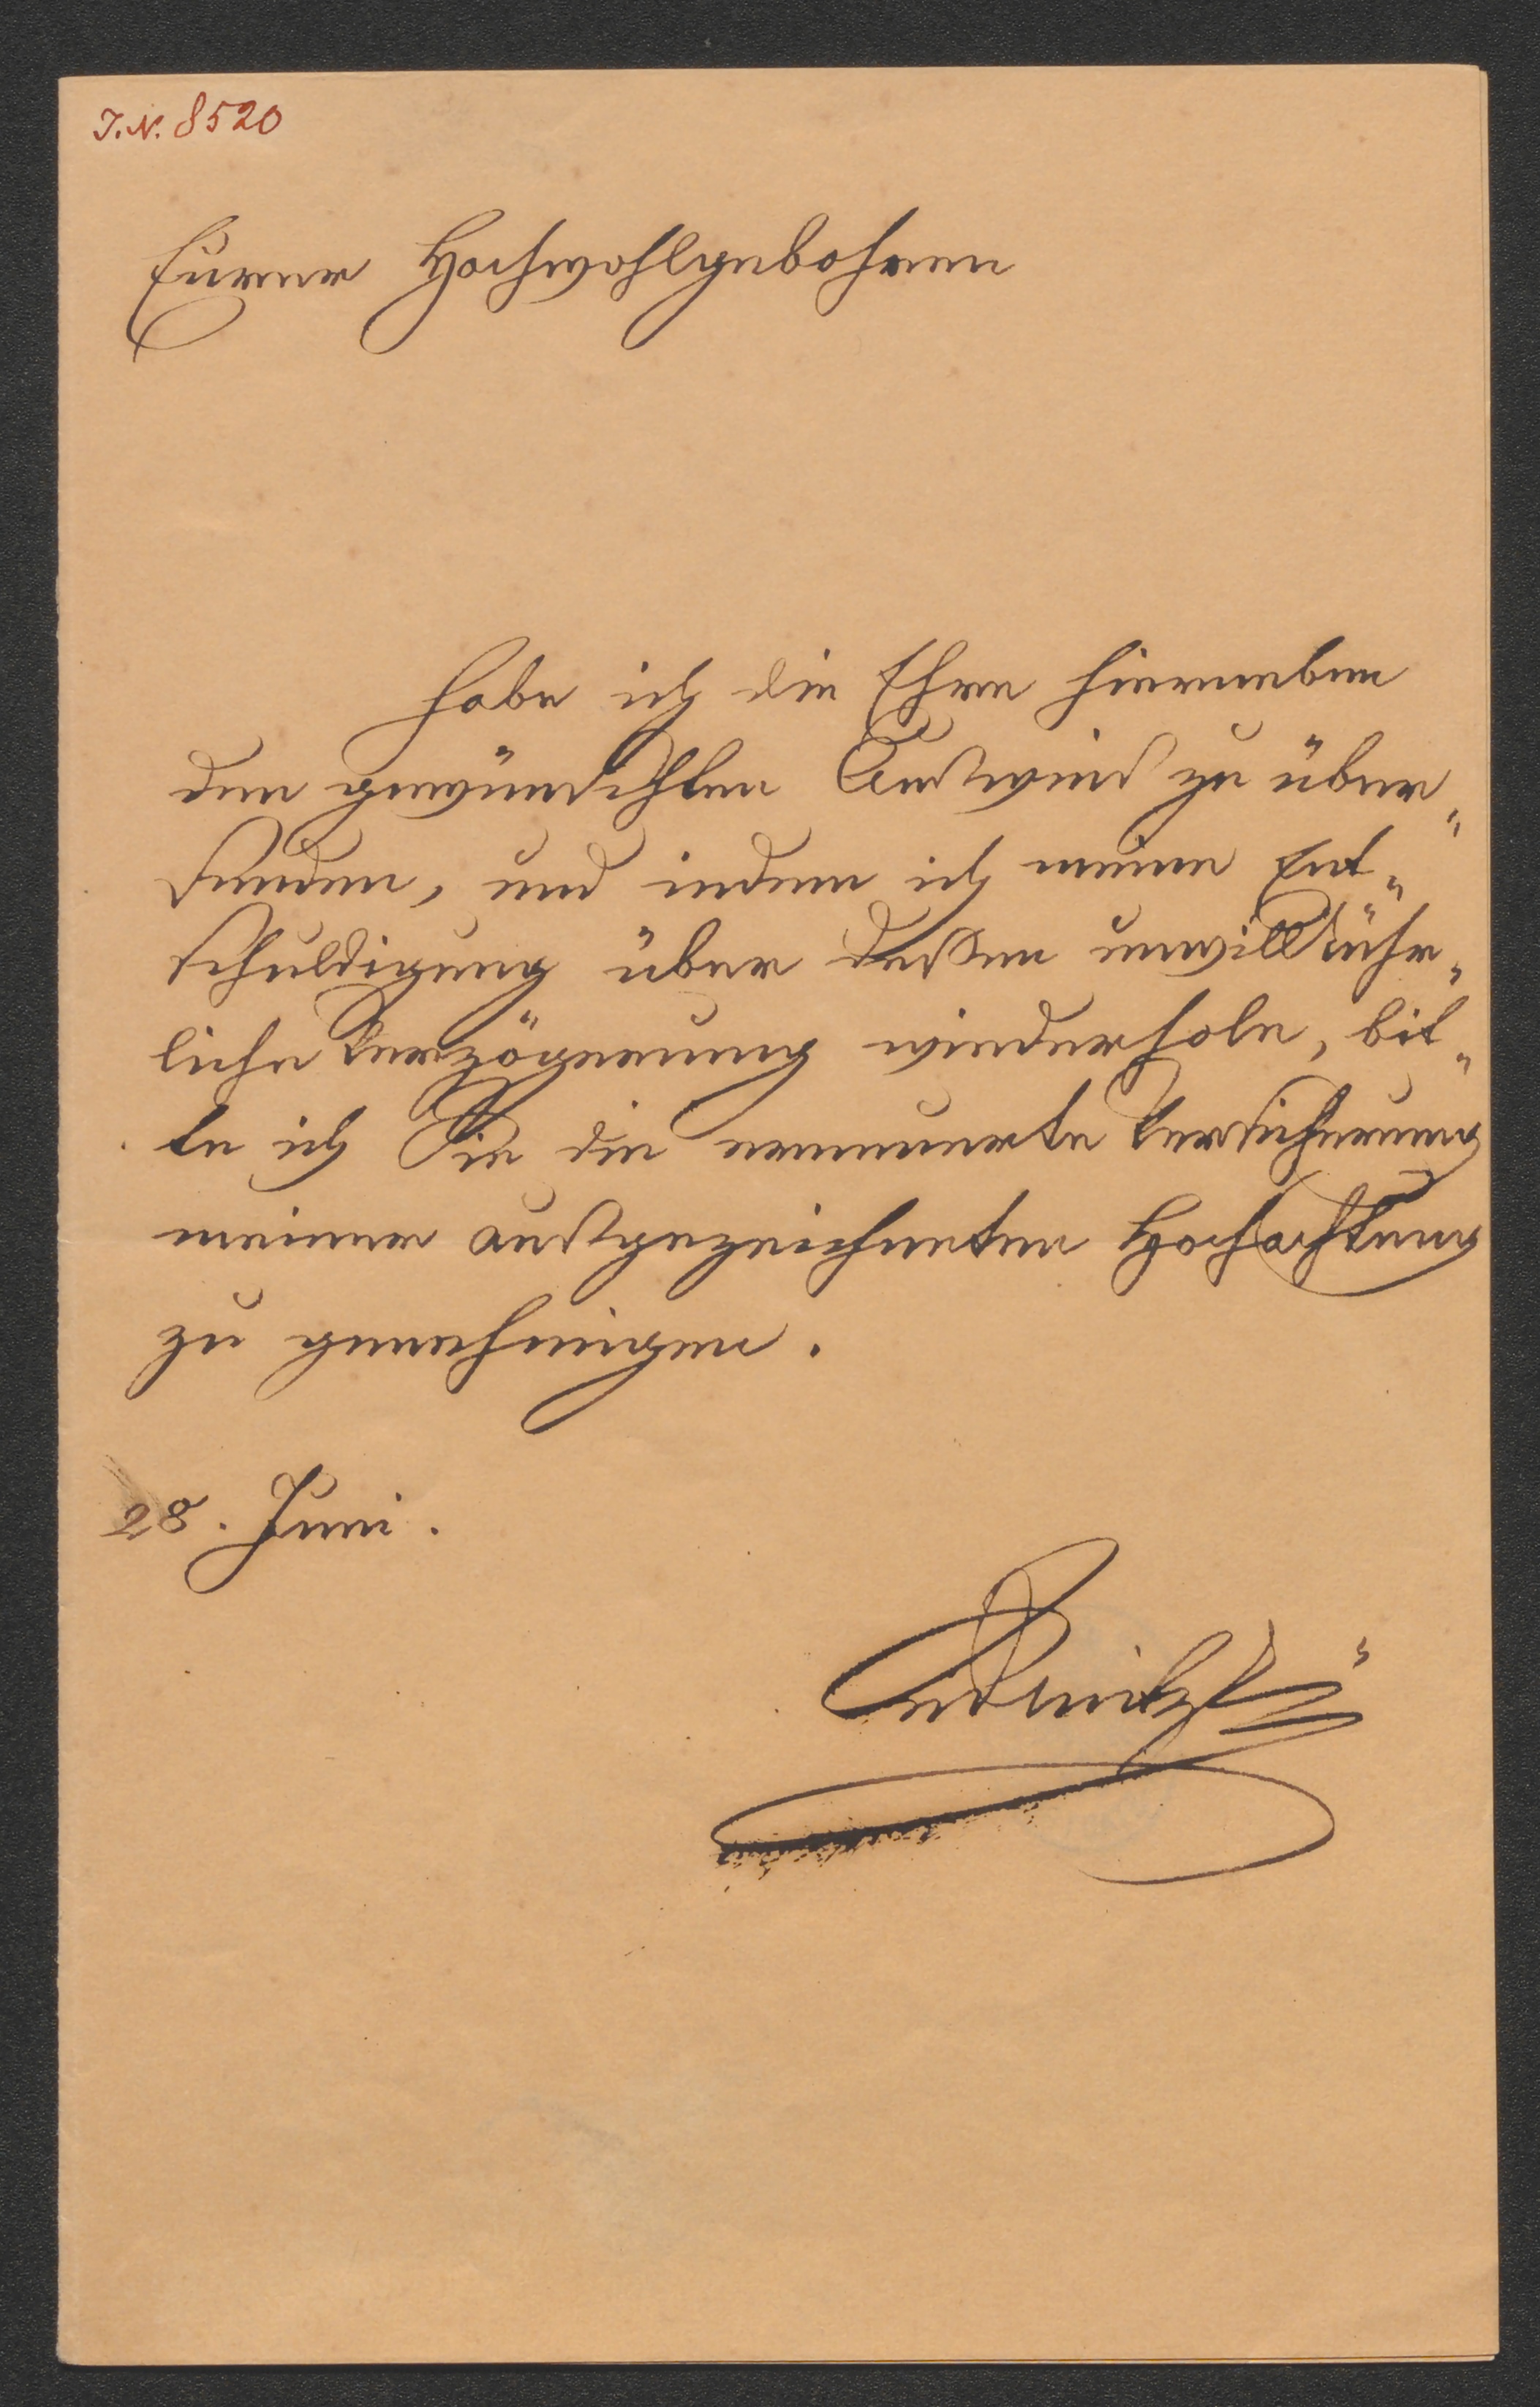 J.N. 8520
Eurer Hochwohlgebohren
habe ich die Ehre hierneben
den gewünschten Ausweis zu über„
senden, und indem ich meine Ent„
schuldigung über dessen unwillkühr„
liche Verzögerung wiederhole, bit„
te ich Sie die erneuerte Versicherung
meiner ausgezeichneten Hochachtung
zu genehmigen.
28. Juni.